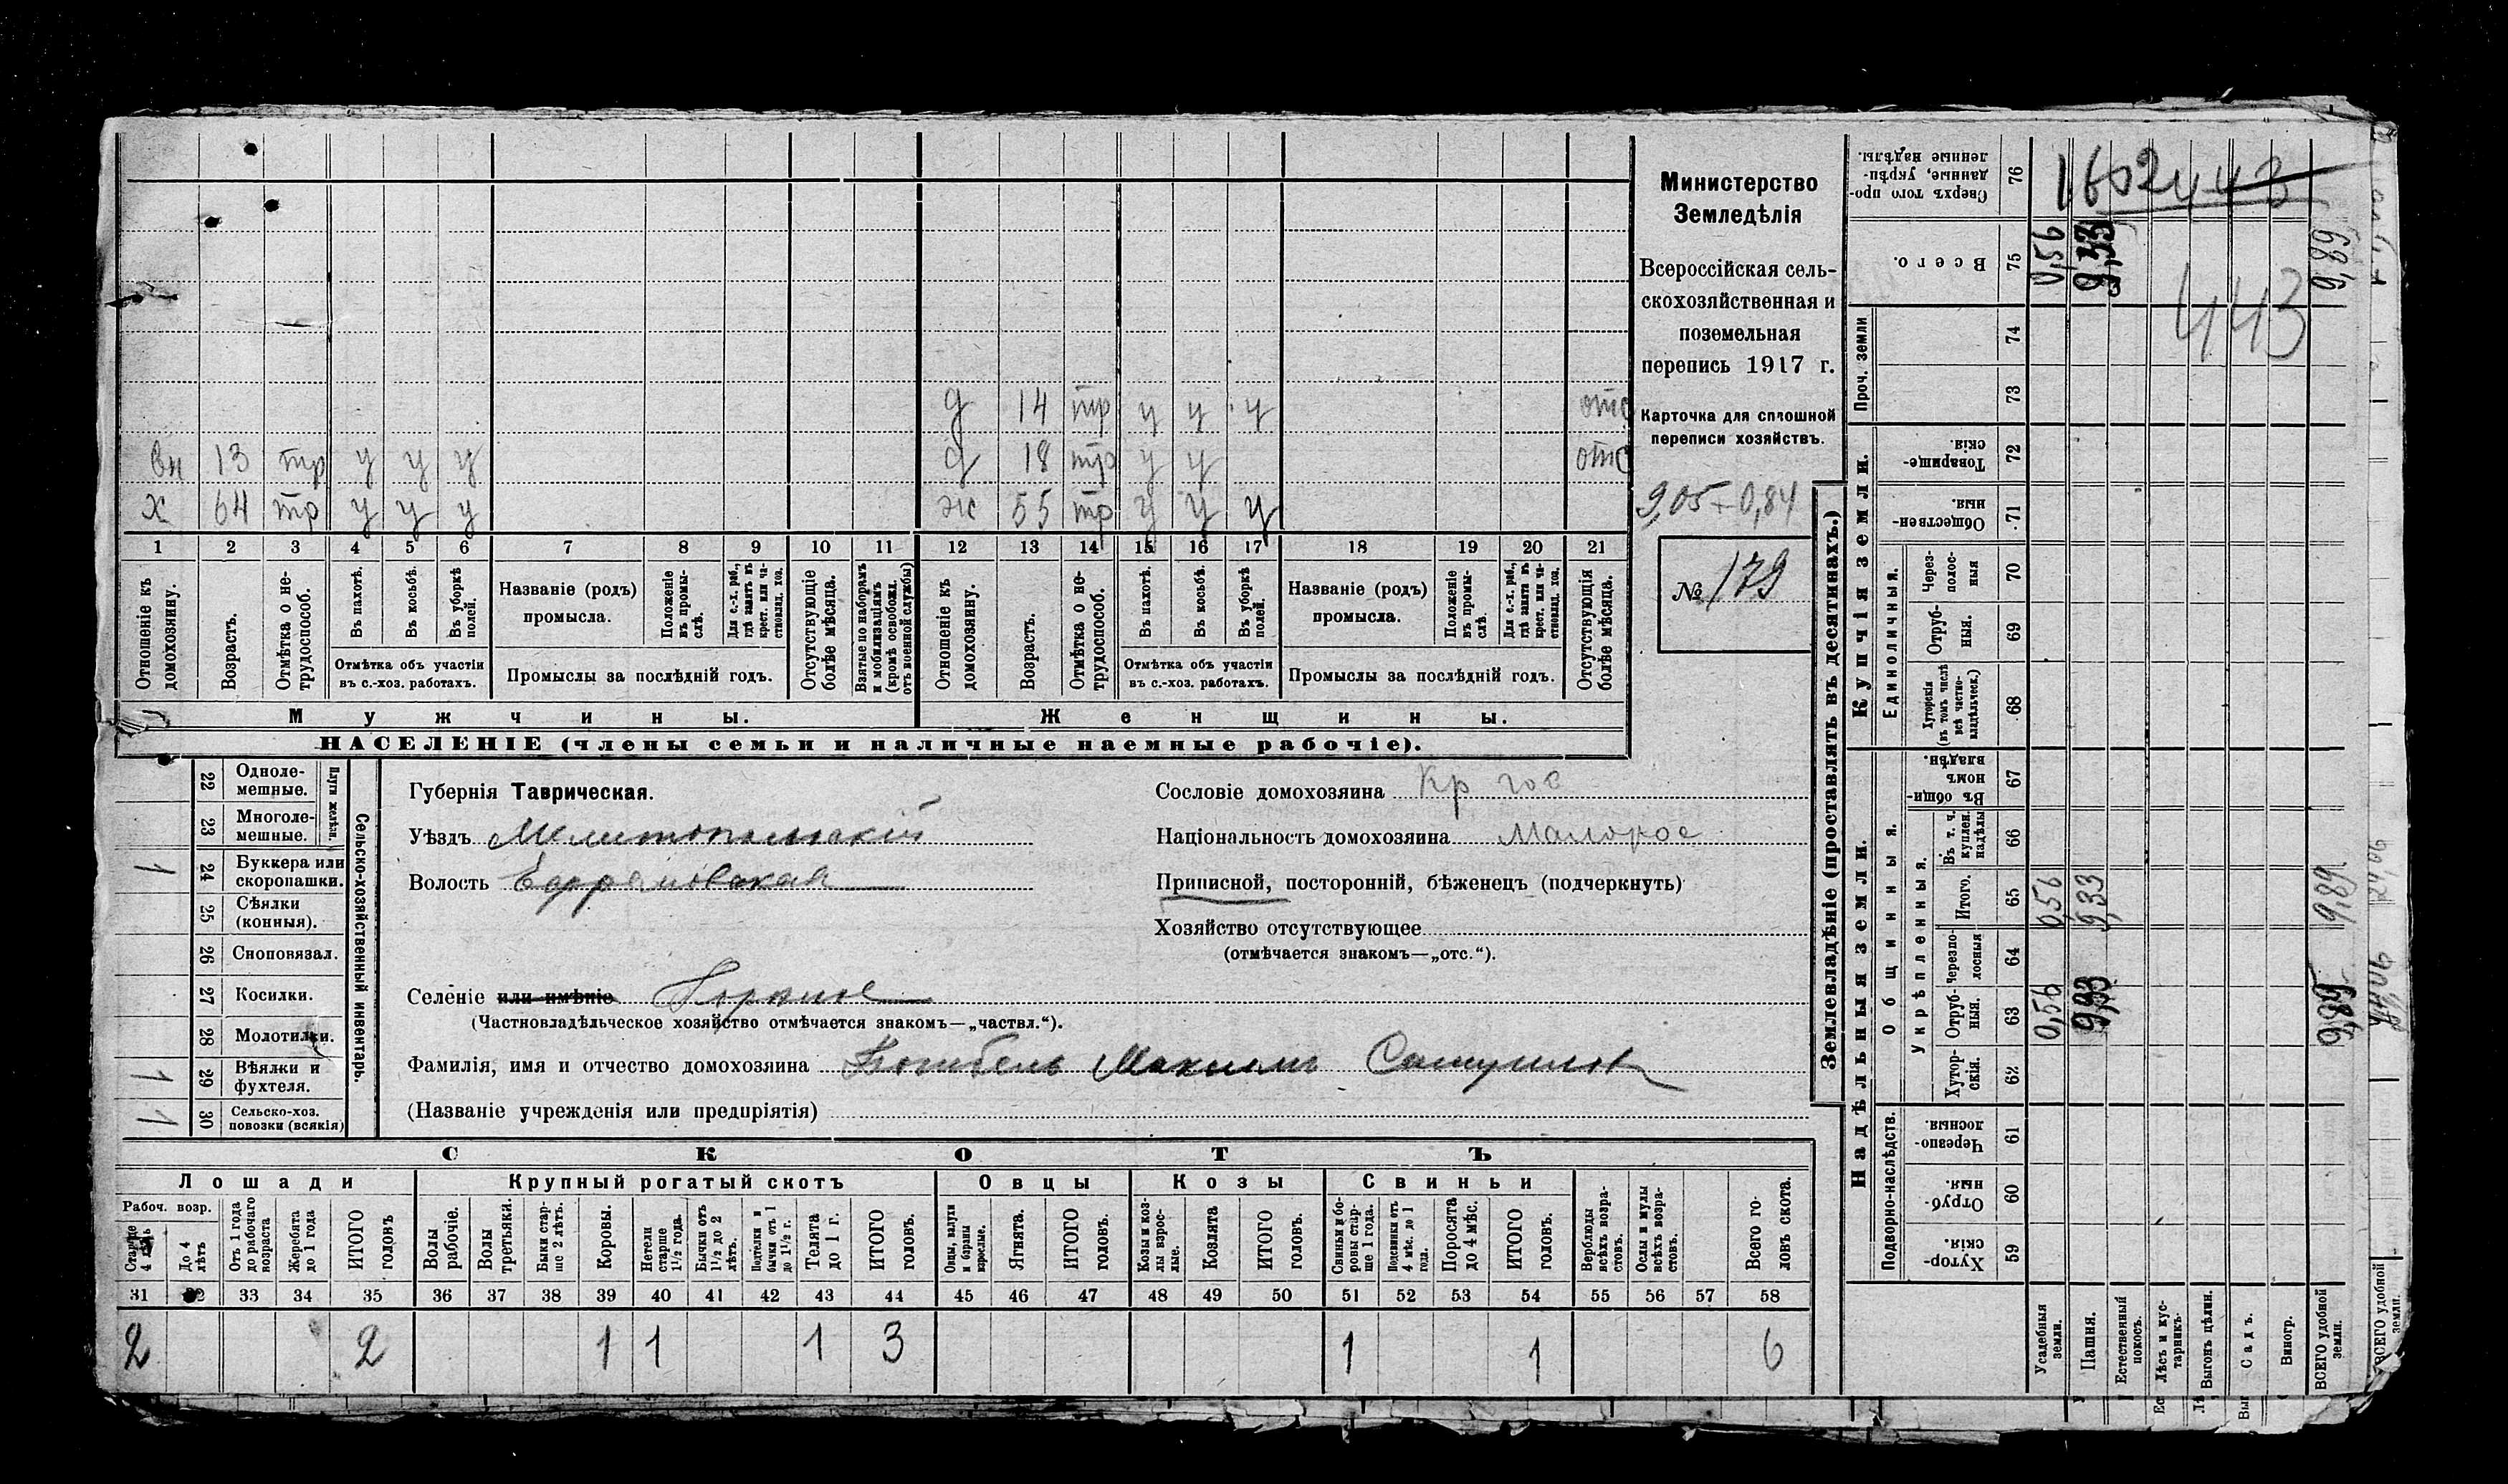 д 14 тр у у у отс
вн 13 тр у у у д 18 тр у у отс
х 64 тр у у у ж 55 тр у у у
1 2 3 4 5 6 7 8 9 10 11 12 13 14 15 16 17 18 19 20 21
Отношеніе къ домохозяину.
Возрастъ.
Отмѣтка о не-трудоспособ.
Въ пахотѣ.
Въ косьбѣ.
Въ уборкѣ полей.
Отмѣтка объ участіи
въ с.-хоз. работахъ.
Названіе (родъ)
промысла.
Положеніе въ промы-слѣ.
Для с.-х. раб., гдѣ занятъ въ крест. или ча-стновлад. хоз.
Промыслы за послѣдній годъ.
Отсутствующіе болѣе мѣсяца.
Взятые по наборамъ и мобилизаціямъ (кромѣ освобожд. отъ военной службы)
Отношеніе къ домохозяину.
Возрастъ.
Отмѣтка о не-трудоспособ.
Въ пахотѣ.
Въ косьбѣ.
Въ уборкѣ полей.
Отмѣтка объ участіи
въ с.-хоз. работахъ.
Названіе (родъ)
промысла.
Положеніе въ промы-слѣ.
Для с.-х. раб., гдѣ занята въ крест. или ча-стновлад. хоз.
Промыслы за послѣдній годъ.
Отсутствующія болѣе мѣсяца.
Мужчины. Женщины.
НАСЕЛЕНІЕ (члены семьи и наличные наемные рабочіе).
Министерство
Земледѣлія
Всероссійская сель-
скохозяйственная и
поземельная
перепись 1917 г.
Карточка для сплошной
переписи хозяйствъ.
9,05 + 0,84
№ 179
22 Одноле-мешные.
23 Многоле-мешные.
Плуги желѣзн.
24 Буккера или скоропашки. 1
25 Сѣялки (конныя).
26 Сноповязал.
27 Косилки.
28 Молотилки.
29 Вѣялки и фухтеля. 1
30 Сельско-хоз. повозки (всякія) 1
Сельско-хозяйственный инвентарь.
Губернія Таврическая.
Уѣздъ Мелитопольскій
Волость Ефремовская
Селеніе или имѣніе
(Частновладѣльческое хозяйство отмѣчается знакомъ—„частвл.“).
Фамилія, имя и отчество домохозяина Максимъ
(Названіе учрежденія или предпріятія)
Сословіе домохозяина Кр гос
Національность домохозяина Малорос
Приписной, посторонній, бѣженецъ (подчеркнуть)
Хозяйство отсутствующее
(отмѣчается знакомъ—„отс.“).
СКОТЪ
Лошади Крупный рогатый скотъ Овцы Козы Свиньи
Рабоч. возр.
Старше 4 лѣтъ
До 4 лѣтъ
Отъ 1 года до рабочаго возраста
Жеребята до 1 года
ИТОГО головъ
Волы рабочіе.
Волы третьяки.
Быки стар-ше 2 лѣтъ.
Коровы.
Нетели старше 1½ года.
Бычки отъ 1½ до 2 лѣтъ.
Подтелки и бычки отъ 1 до 1½ г.
Телята до 1 г.
ИТОГО головъ.
Овцы, валухи и бараны взрослые.
Ягнята.
ИТОГО головъ.
Козы и коз-лы взрос-лые.
Козлята
ИТОГО головъ.
Свиньи и бо-ровы стар-ше 1 года.
Подсвинки отъ 4 мѣс. до 1 года.
Поросята до 4 мѣс.
ИТОГО головъ.
Верблюды всѣхъ возра-стовъ.
Ослы и мулы всѣхъ возра-стовъ.
Всего го-ловъ скота.
31 32 33 34 35 36 37 38 39 40 41 42 43 44 45 46 47 48 49 50 51 52 53 54 55 56 57 58
2 2 1 1 1 3 1 1 6
Землевладѣніе (проставлять въ десятинахъ.)
Надѣльныя земли. Купчія земли. Проч. земли
Подворно-наслѣдств. Общинныя. Укрѣпленныя. Единоличныя.
Сверхъ того про-данные, укрѣп-ленные надѣлы. 76
Всего. 75 0,56 9,33 9,89
74
73
Товарище-скія. 72
Обществен-ныя. 71
Через-полос-ныя 70
Отруб-ныя. 69
Хуторскія (въ томъ числѣ всѣ частно-владѣльческ.) 68
Въ общи-номъ владѣн. 67
Въ т. ч. куплен. надѣлы 66
Итого. 65 0,56 9,33 9,89
Черезпо-лосныя 64
Отруб-ныя. 63 0,56 9,33 9,89
Хутор-скія. 62
Черезпо-лосныя. 61
Отруб-ныя. 60
Хутор-скія. 59
Усадебныя земли.
Пашня.
Естественный покосъ.
Лѣсъ и кус-тарникъ.
Выгонъ цѣлин.
Садъ.
Виногр.
ВСЕГО удобной земли.
443
ВСЕГО удобной земли.